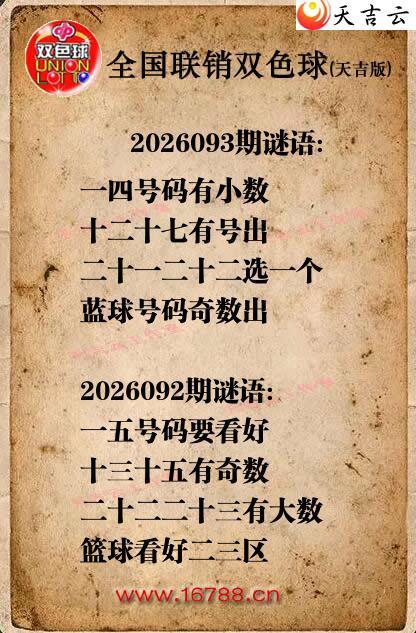 天吉云
双色球
UNION
LOTTO
全国联销双色球(天吉版)
2026093期谜语:
一四号码有小数
十二十七有号出
二十一二十二选一个
蓝球号码奇数出
2026092期谜语:
一五号码要看好
十三十五有奇数
二十二二十三有大数
篮球看好二三区
www.16788.cn